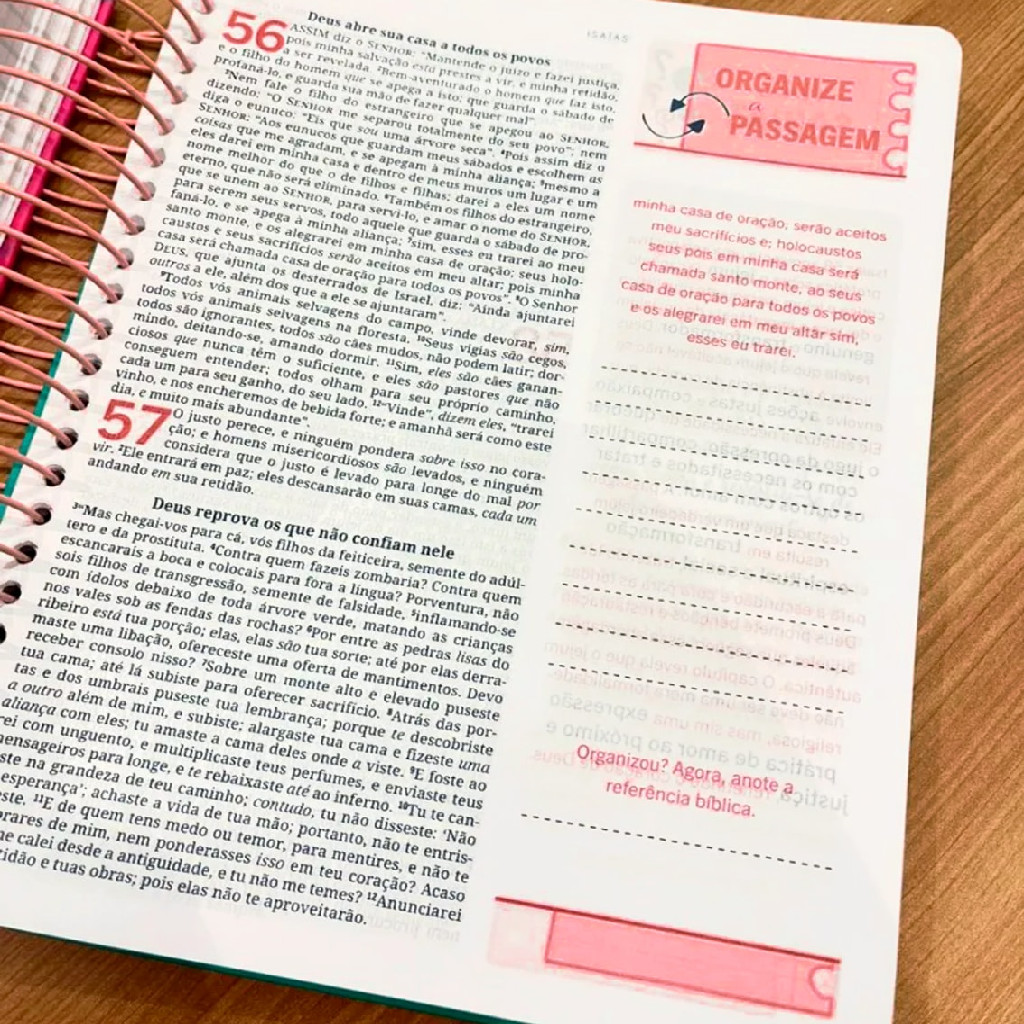 ISAÍAS
Deus abre sua casa a todos os povos
56 ASSIM diz o SENHOR: "Mantende o juízo e fazei justiça,
pois minha salvação está prestes a vir, e minha retidão,
a ser revelada. ²Bem-aventurado o homem que faz isto,
e o filho do homem que se apega a isto; que guarda o sábado de
profaná-lo, e guarda sua mão de fazer qualquer mal".
³Nem fale o filho do estrangeiro que se apegou ao SENHOR,
dizendo: "O SENHOR me separou totalmente do seu povo"; nem
diga o eunuco: "Eis que sou uma árvore seca". ⁴Pois assim diz o
SENHOR: "Aos eunucos que guardam meus sábados e escolhem as
coisas que me agradam, e se apegam à minha aliança; ⁵mesmo a
eles darei em minha casa e dentro de meus muros um lugar e um
nome melhor do que o de filhos e filhas; darei a eles um nome
eterno, que não será eliminado. ⁶Também os filhos do estrangeiro,
que se unem ao SENHOR, para servi-lo, e amar o nome do SENHOR,
para serem seus servos, todo aquele que guarda o sábado de pro-
faná-lo, e se apega à minha aliança; ⁷sim, esses eu trarei ao meu
santo monte, e os alegrarei em minha casa de oração; seus holo-
caustos e seus sacrifícios serão aceitos em meu altar; pois minha
casa será chamada casa de oração para todos os povos". ⁸O Senhor
DEUS, que ajunta os desterrados de Israel, diz: "Ainda ajuntarei
outros a ele, além dos que a ele se ajuntaram".
⁹Todos vós animais selvagens do campo, vinde devorar, sim,
todos vós animais selvagens na floresta, ¹⁰Seus vigias são cegos,
todos são ignorantes, todos são cães mudos, não podem latir; dor-
mindo, deitando-se, amando dormir. ¹¹Sim, eles são cães ganan-
ciosos que nunca têm o suficiente, e eles são pastores que não
conseguem entender; todos olham para seu próprio caminho,
cada um para seu ganho, do seu lado. ¹²"Vinde", dizem eles, "trarei
vinho, e nos encheremos de bebida forte; e amanhã será como este
dia, e muito mais abundante".
57 O justo perece, e ninguém pondera sobre isso no cora-
ção; e homens misericordiosos são levados, e ninguém
considera que o justo é levado para longe do mal por
vir. ²Ele entrará em paz; eles descansarão em suas camas, cada um
andando em sua retidão.
Deus reprova os que não confiam nele
³"Mas chegai-vos para cá, vós filhos da feiticeira, semente do adúl-
tero e da prostituta. ⁴Contra quem fazeis zombaria? Contra quem
escancarais a boca e colocais para fora a língua? Porventura, não
sois filhos de transgressão, semente de falsidade, ⁵inflamando-se
com ídolos debaixo de toda árvore verde, matando as crianças
nos vales sob as fendas das rochas? ⁶Por entre as pedras lisas do
ribeiro está tua porção; elas, elas são tua sorte; até por elas derra-
maste uma libação, ofereceste uma oferta de mantimentos. Devo
receber consolo nisso? ⁷Sobre um monte alto e elevado puseste
tua cama; até lá subiste para oferecer sacrifício. ⁸Atrás das por-
tas e dos umbrais puseste tua lembrança; porque te descobriste
a outro além de mim, e subiste; alargaste tua cama e fizeste uma
aliança com eles; tu amaste a cama deles onde a viste. ⁹E foste ao
rei com unguento, e multiplicaste teus perfumes, e enviaste teus
mensageiros para longe, e te rebaixaste até ao inferno. ¹⁰Tu te can-
ste na grandeza de teu caminho; contudo, tu não disseste: 'Não
esperança'; achaste a vida de tua mão; portanto, não te entris-
este. ¹¹E de quem tens medo ou temor, para mentires, e não te
brares de mim, nem ponderasses isso em teu coração? Acaso
me calei desde a antiguidade, e tu não me temes? ¹²Anunciarei
tidão e tuas obras; pois elas não te aproveitarão.
ORGANIZE
a
PASSAGEM
minha casa de oração; serão aceitos
meu sacrifícios e; holocaustos
seus pois em minha casa será
chamada santo monte, ao seus
casa de oração para todos os povos
e os alegrarei em meu altar sim,
esses eu trarei.
Organizou? Agora, anote a
referência bíblica.